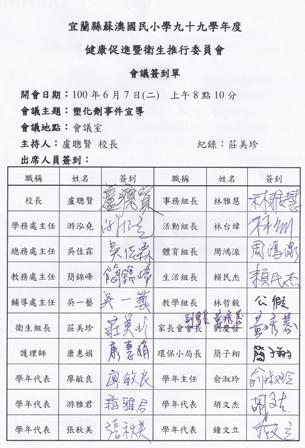 宜蘭縣蘇澳國民小學九十九學年度
健康促進暨衛生推行委員會
會議簽到單
開會日期：100 年 6 月 7 日(二) 上午 8 點 10 分
會議主題：塑化劑事件宣導
會議地點：會議室
主持人：盧聰賢 校長 紀錄：莊美珍
出席人員簽到：
職稱 姓名 簽到 職稱 姓名 簽到
校長 盧聰賢 盧聰賢 事務組長 林雅慧 林雅慧
學務處主任 游泓堯 活動組長 林台緯
總務處主任 吳佳霖 吳佳霖 體育組長 周鴻源 周鴻源
教務處主任 簡錦峰 簡錦峰 生活組長 賴民杰 賴民杰
輔導處主任 吳一藝 吳一藝 教學組長 林哲毅 公假
衛生組長 莊美珍 莊美珍 家長會會長
護理師 康惠娟 康惠娟 環保小局長 簡子翔 簡子翔
學年代表 廖敏良 廖敏良 學年主任 俞淑玲 俞淑玲
學年代表 游雅君 游雅君 學年代表 胡文杰
學年代表 張秋美 張秋美 學年代表 鐘文立